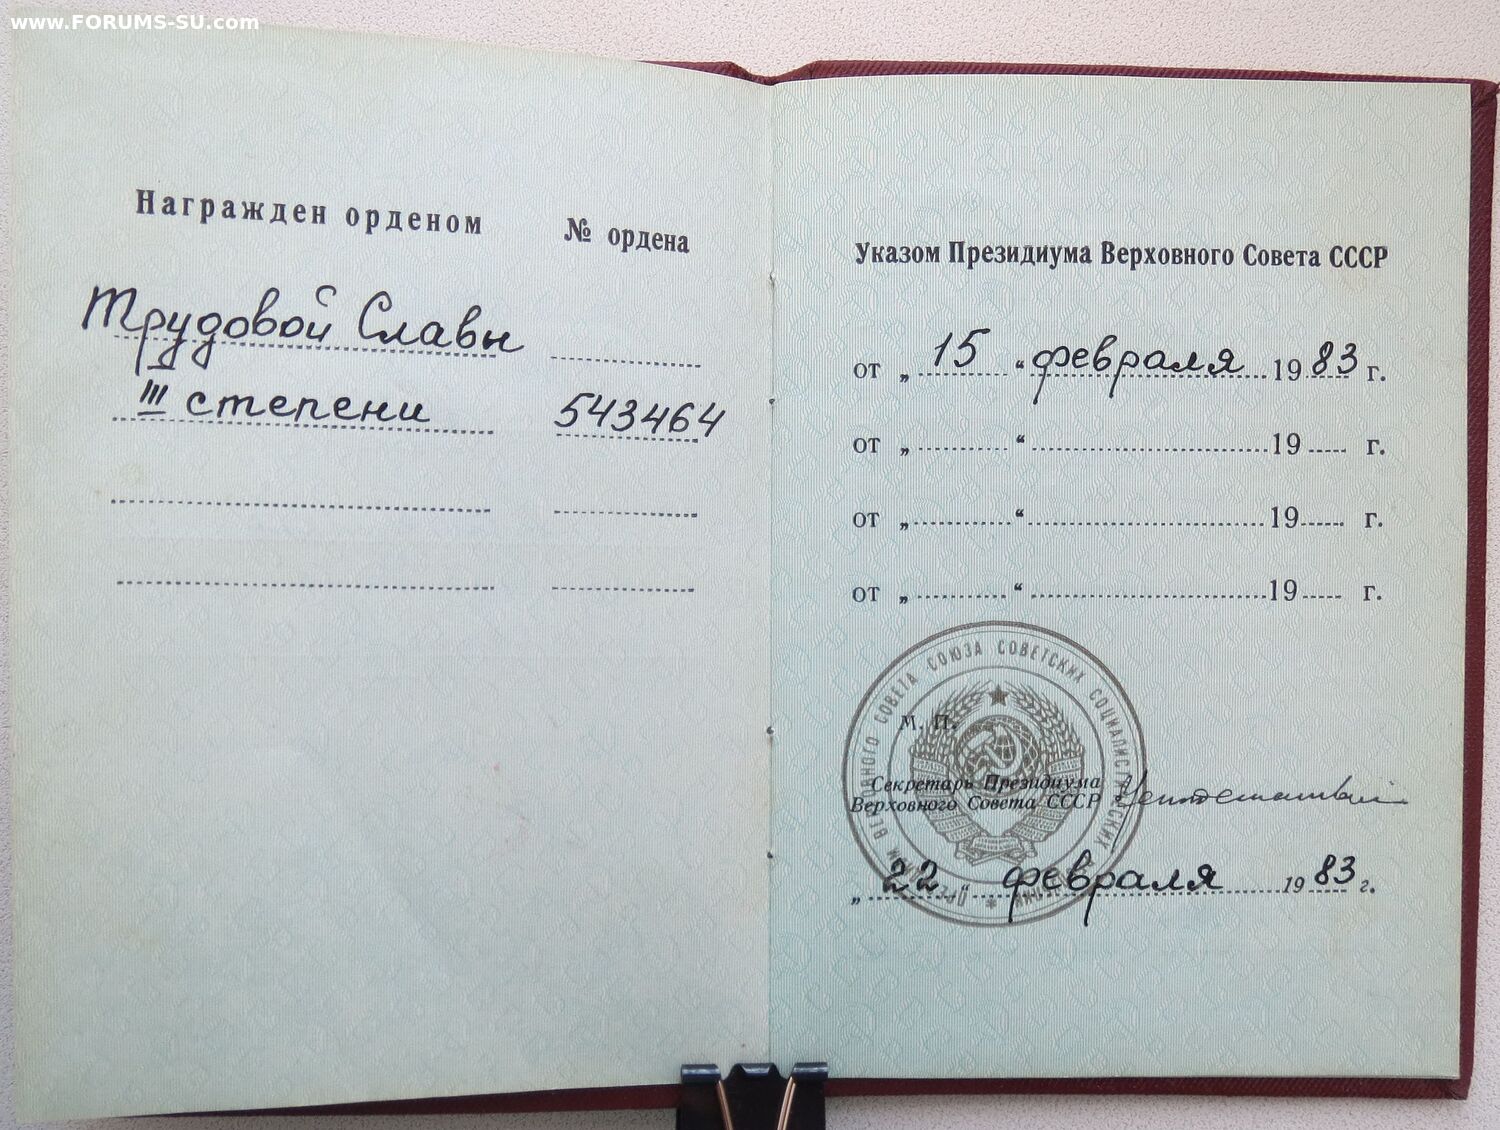 www.FORUMS-SU.com
Награжден орденом
№ ордена
Трудовой Славы
III степени
543464
Указом Президиума Верховного Совета СССР
от „ 15 “ февраля 1983 г.
от „ “ 19 г.
от „ “ 19 г.
от „ “ 19 г.
М. П.
Секретарь Президиума
Верховного Совета СССР
„ 22 “ февраля 1983 г.
ВЕРХОВНОГО СОВЕТА СОЮЗА СОВЕТСКИХ СОЦИАЛИСТИЧЕСКИХ